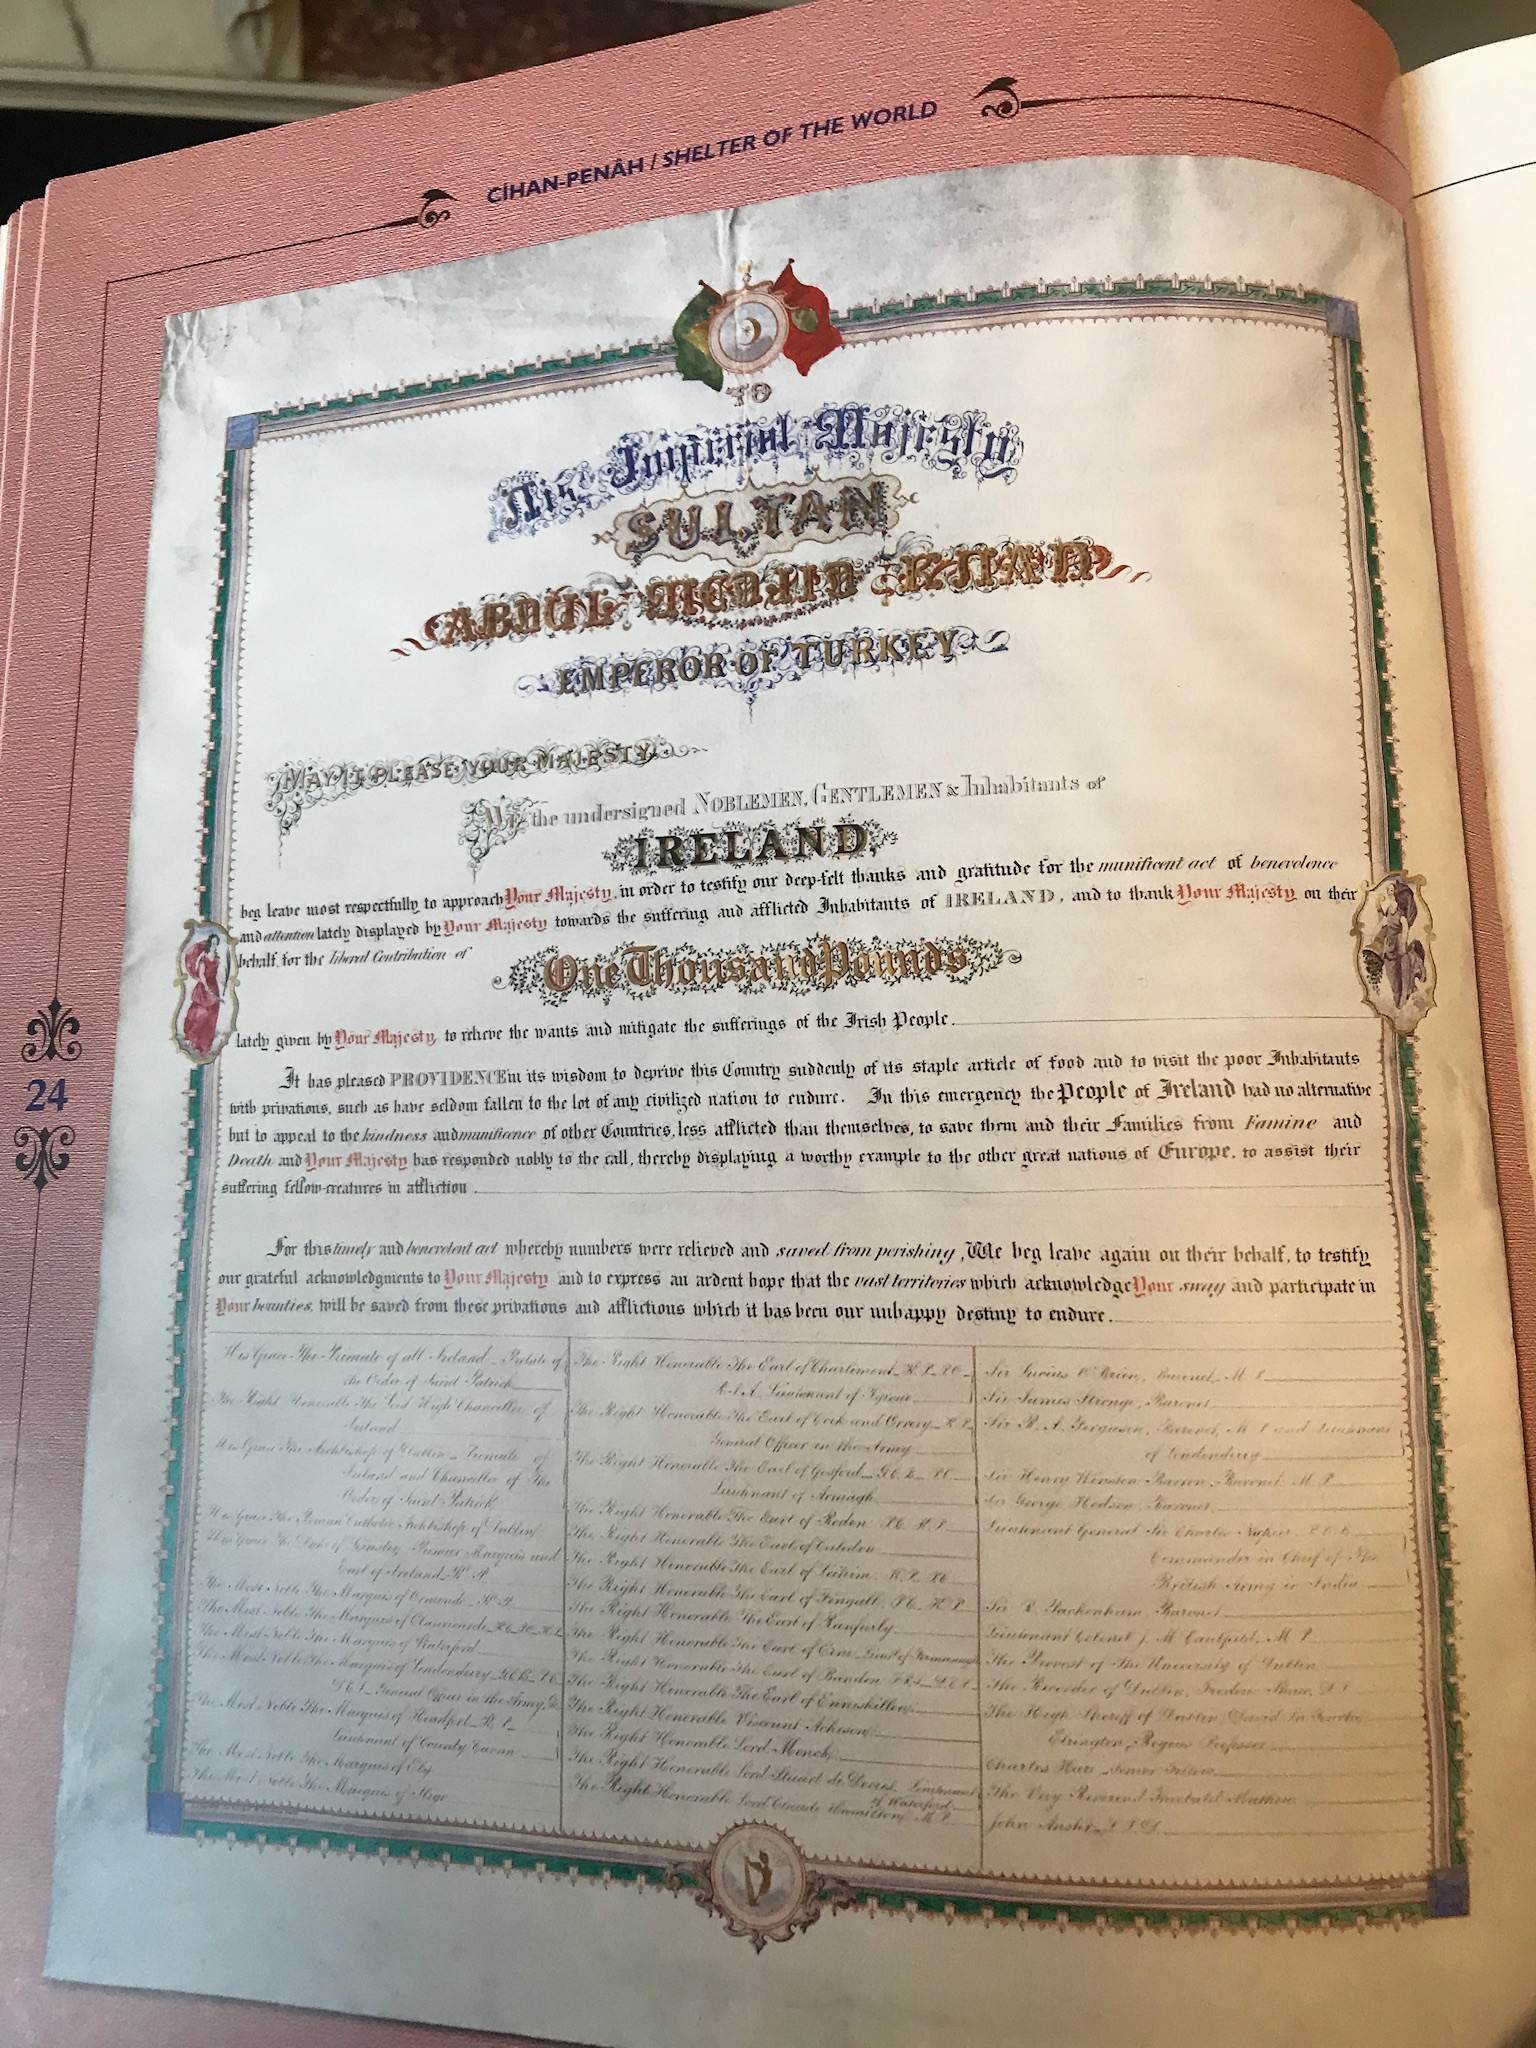 CİHAN-PENÂH / SHELTER OF THE WORLD
TO
His Imperial Majesty
SULTAN
ABDUL MEDJID KHAN
EMPEROR OF TURKEY
MAY IT PLEASE YOUR MAJESTY
WE the undersigned NOBLEMEN, GENTLEMEN & Inhabitants of
IRELAND,
beg leave most respectfully to approach Your Majesty, in order to testify our deep-felt thanks and gratitude for the munificent act of benevolence
and attention lately displayed by Your Majesty towards the suffering and afflicted Inhabitants of IRELAND, and to thank Your Majesty on their
behalf, for the liberal Contribution of
One Thousand Pounds
lately given by Your Majesty, to relieve the wants and mitigate the sufferings of the Irish People.
It has pleased PROVIDENCE in its wisdom to deprive this Country suddenly of its staple article of food and to visit the poor Inhabitants
with privations, such as have seldom fallen to the lot of any civilized nation to endure. In this emergency the People of Ireland had no alternative
but to appeal to the kindness and munificence of other Countries, less afflicted than themselves, to save them and their Families from Famine and
Death and Your Majesty has responded nobly to the call, thereby displaying a worthy example to the other great nations of Europe, to assist their
suffering fellow-creatures in affliction.
24
For this timely and benevolent act whereby numbers were relieved and saved from perishing, We beg leave again on their behalf, to testify
our grateful acknowledgments to Your Majesty and to express an ardent hope that the vast territories which acknowledge Your sway and participate in
Your bounties, will be saved from these privations and afflictions which it has been our unhappy destiny to endure.
His Grace The Primate of all Ireland _ Prelate of
the Order of Saint Patrick
The Right Honorable The Lord High Chancellor of
Ireland
His Grace The Archbishop of Dublin _ Primate of
Ireland and Chancellor of The
Order of Saint Patrick
His Grace The Roman Catholic Archbishop of Dublin
His Grace The Duke of Leinster, Premier Marquis and
Earl of Ireland
The Most Noble The Marquis of Ormonde _ K. P.
The Most Noble The Marquis of Clanricarde
The Most Noble The Marquis of Waterford
The Most Noble The Marquis of Londonderry _ G.C.B.
General Officer in the Army
The Most Noble The Marquis of Headfort _ K. P. _
Lieutenant of County Cavan
The Most Noble The Marquis of Ely
The Most Noble The Marquis of Sligo
The Right Honorable The Earl of Charlemont _ K. P.
Lieutenant of Tyrone
The Right Honorable The Earl of Cork and Orrery _ K. P.
General Officer in the Army
The Right Honorable The Earl of Gosford _ G.C.B. _ P.C.
Lieutenant of Armagh
The Right Honorable The Earl of Roden
The Right Honorable The Earl of Caledon
The Right Honorable The Earl of Leitrim
The Right Honorable The Earl of Fingall
The Right Honorable The Earl of Ranfurly
The Right Honorable The Earl of Erne _ Lieut. of Fermanagh
The Right Honorable The Earl of Bandon
The Right Honorable The Earl of Enniskillen
The Right Honorable Viscount Acheson
The Right Honorable Lord Monck
The Right Honorable Lord Stuart de Decies _ Lieutenant
of Waterford
The Right Honorable Lord Claude Hamilton, M. P.
Sir Lucius O'Brien, Baronet, M. P.
Sir James Stronge, Baronet
Sir R. A. Ferguson, Baronet, M. P. and Lieutenant
of Londonderry
Sir Henry Winston Barron, Baronet, M. P.
Sir George Hodson, Baronet
Lieutenant General Sir Charles Napier
Commander in Chief of The
British Army in India
Sir R. Packenham, Baronet
Lieutenant Colonel J. M. Caulfield, M. P.
The Provost of The University of Dublin
The Recorder of Dublin
The High Sheriff of Dublin, David La Touche
Elrington, Regius Professor
Charles Hare, Senior Fellow
The Very Reverend Theobald Mathew
John Anster, L L D.